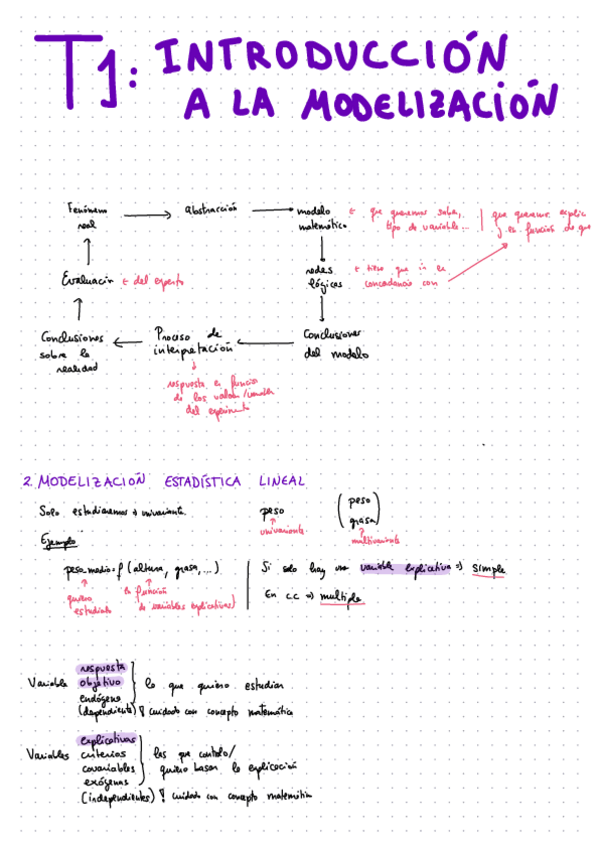 T1: INTRODUCCIÓN
A LA MODELIZACIÓN
Fenómeno real → abstracción → modelo matemático ← que queremos saber, tipo de variable... | que queremos explicar y en función de que
reglas lógicas ← tiene que ir en concordancia con
Evaluación ← del experto
Conclusiones sobre la realidad ← Proceso de interpretación ← Conclusiones del modelo
respuesta en función de los valores/
del experimento
2. MODELIZACIÓN ESTADÍSTICA LINEAL
Solo estudiaremos → univariante
peso
univariante
(peso
grasa)
multivariante
Ejemplo
peso medio = f (altura, grasa, ...)
quiero estudiarlo
en función de variables explicativas)
Si solo hay una variable explicativa ⇒ simple
En c.c ⇒ multiple
Variable
respuesta
objetivo
endógena
(dependiente) ! cuidado con concepto matemático
lo que quiero estudiar
Variables
explicativas
criterias
covariables
exógenas
(independientes) ! cuidado con concepto matemático
las que controlo/
quiero basar la explicación